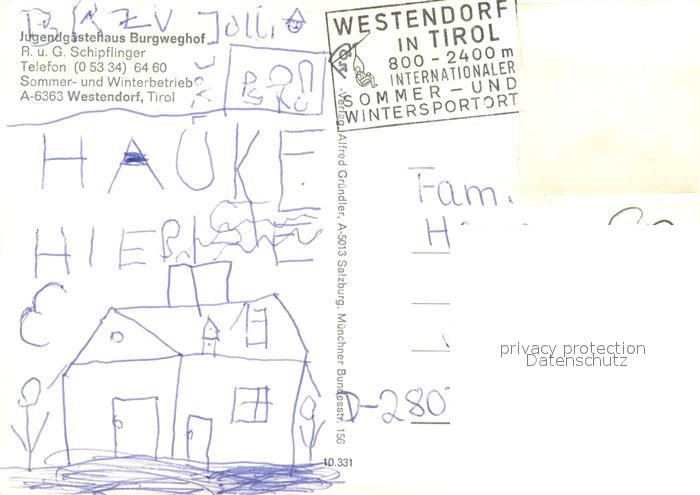 Jolli
Jugendgästehaus Burgweghof
R. u. G. Schipflinger
Telefon (0 53 34) 64 60
Sommer- und Winterbetrieb
A-6363 Westendorf, Tirol
HAUKE
WESTENDORF
IN TIROL
800 - 2400 m
INTERNATIONALER
SOMMER - UND
WINTERSPORTORT
Verlag Alfred Gründler, A-5013 Salzburg, Münchner Bundesstr. 156
10.331
Fam.
H
D-280
privacy protection
Datenschutz